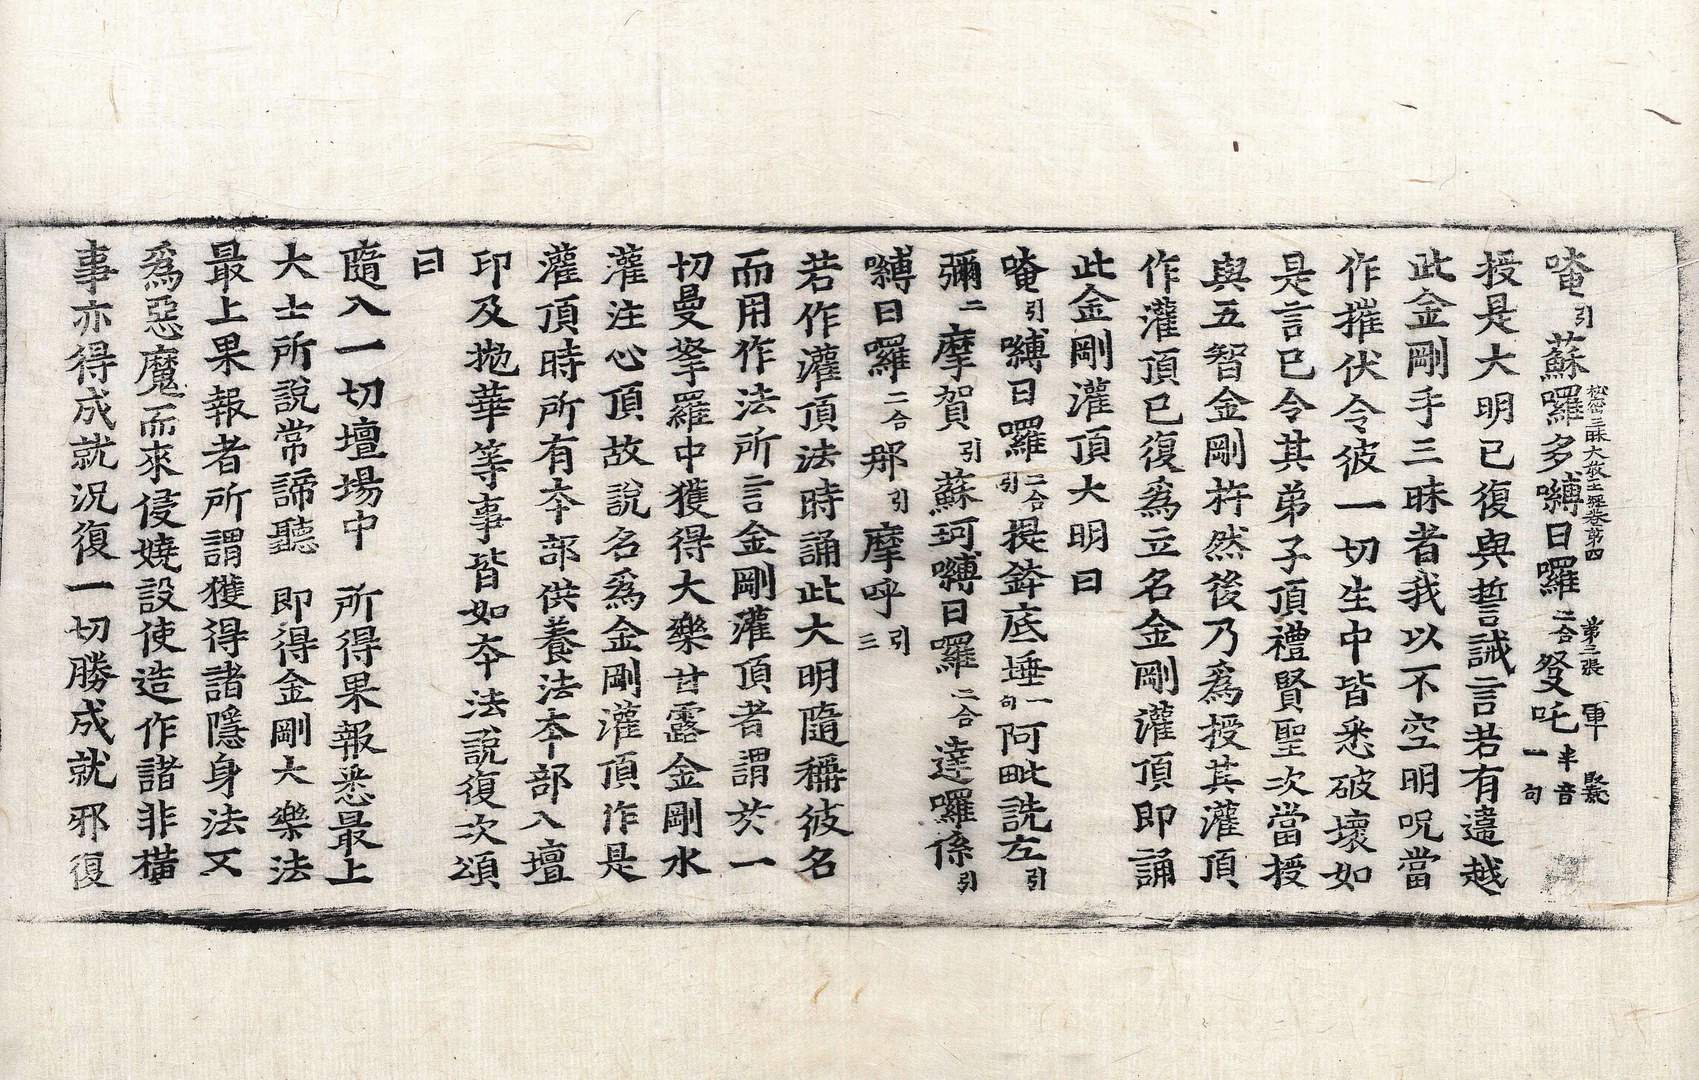 唵引蘇囉多嚩日囉二合發吒半音一句
秘密三昧大教王經卷第四 第二張 軍
授是大明已復與誓誡言若有違越
此金剛手三昧者我以不空明呪當
作摧伏令彼一切生中皆悉破壞如
是言已令其弟子頂禮賢聖次當授
與五智金剛杵然後乃爲授其灌頂
作灌頂已復爲立名金剛灌頂即誦
此金剛灌頂大明曰
唵引嚩日囉二合引提鉢底埵一句阿毗詵左引
彌二摩賀引蘇珂嚩日囉二合達囉係引
嚩日囉二合那引摩呼引三
若作灌頂法時誦此大明隨稱彼名
而用作法所言金剛灌頂者謂於一
切曼拏羅中獲得大樂甘露金剛水
灌注心頂故說名爲金剛灌頂作是
灌頂時所有本部供養法本部入壇
印及拋華等事皆如本法說復次頌
曰
隨入一切壇場中 所得果報悉最上
大士所說常諦聽 即得金剛大樂法
最上果報者所謂獲得諸隱身法又
爲惡魔而來侵嬈設使造作諸非橫
事亦得成就況復一切勝成就邪復